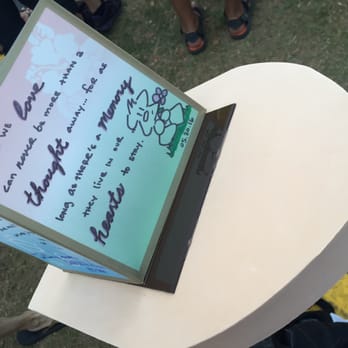 we love
can never be more than a
thought away... for as
long as there's a memory
they live in our
hearts to stay.
05.20.16